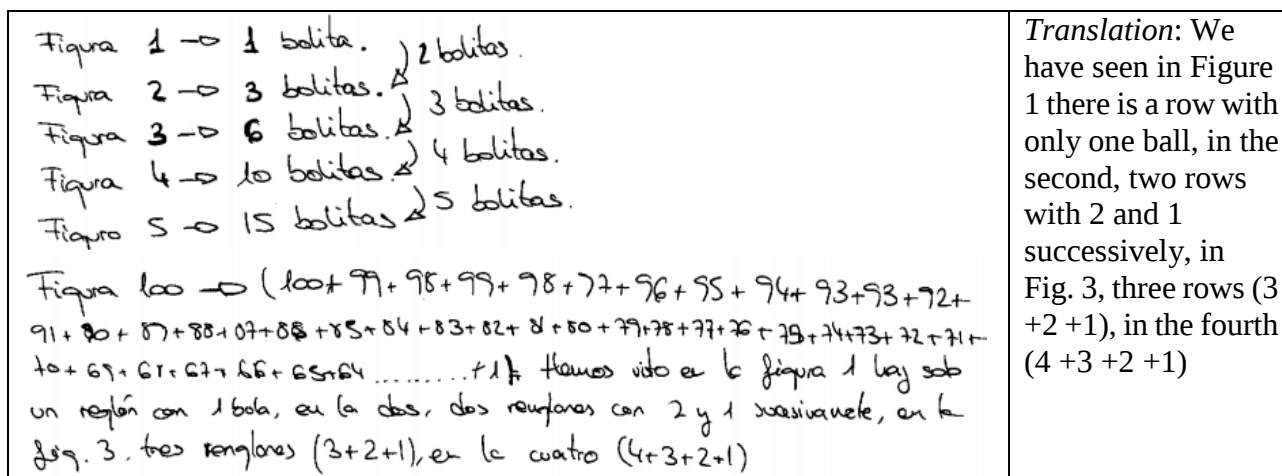 Figura 1 → 1 bolita.
2 bolitas.
Figura 2 → 3 bolitas.
3 bolitas.
Figura 3 → 6 bolitas.
4 bolitas.
Figura 4 → 10 bolitas.
5 bolitas.
Figuro 5 → 15 bolitas
Figura 100 → (100+99+98+99+98+77+96+95+94+93+93+92+
91+90+89+88+07+86+85+84+83+82+81+80+79+78+77+76+75+74+73+72+71+
70+69+68+67+66+65+64.........+1). Hemos visto en la figura 1 hay solo
un reglón con 1 bola, en la dos, dos renglones con 2 y 1 en la
fig. 3. tres renglones (3+2+1), en la cuatro (4+3+2+1)
Translation: We
have seen in Figure
1 there is a row with
only one ball, in the
second, two rows
with 2 and 1
successively, in
Fig. 3, three rows (3
+2 +1), in the fourth
(4 +3 +2 +1)